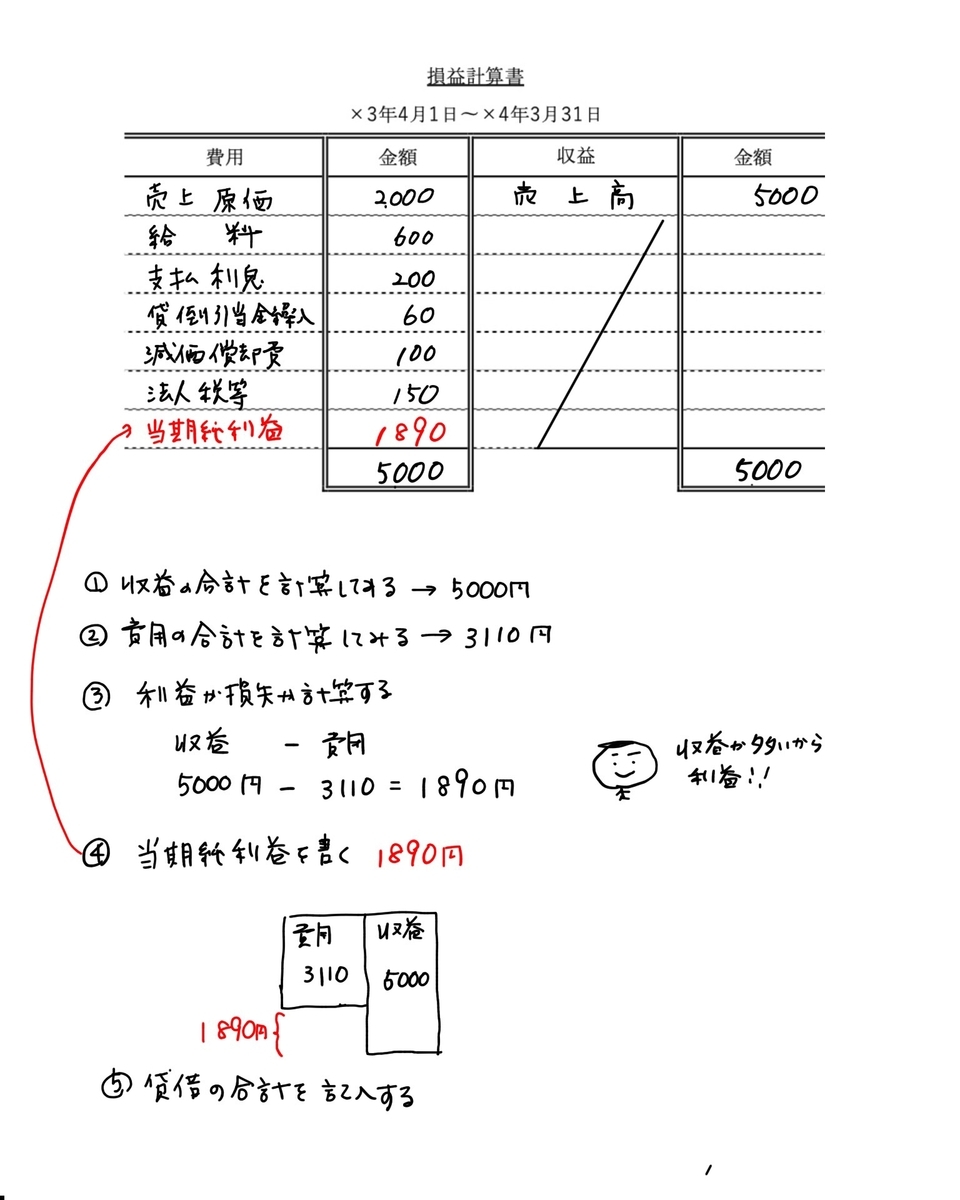 損益計算書
×3年4月1日～×4年3月31日
費用 金額 収益 金額
売上原価 2000 売上高 5000
給料 600
支払利息 200
貸倒引当金繰入 60
減価償却費 100
法人税等 150
当期純利益 1890
5000 5000
① 収益の合計を計算してみる → 5000円
② 費用の合計を計算してみる → 3110円
③ 利益か損失か計算する
収益 － 費用
5000円 － 3110 = 1890円
収益が多いから
利益!!
④ 当期純利益を書く 1890円
費用 収益
3110 5000
1890円{
⑤ 貸借の合計を記入する